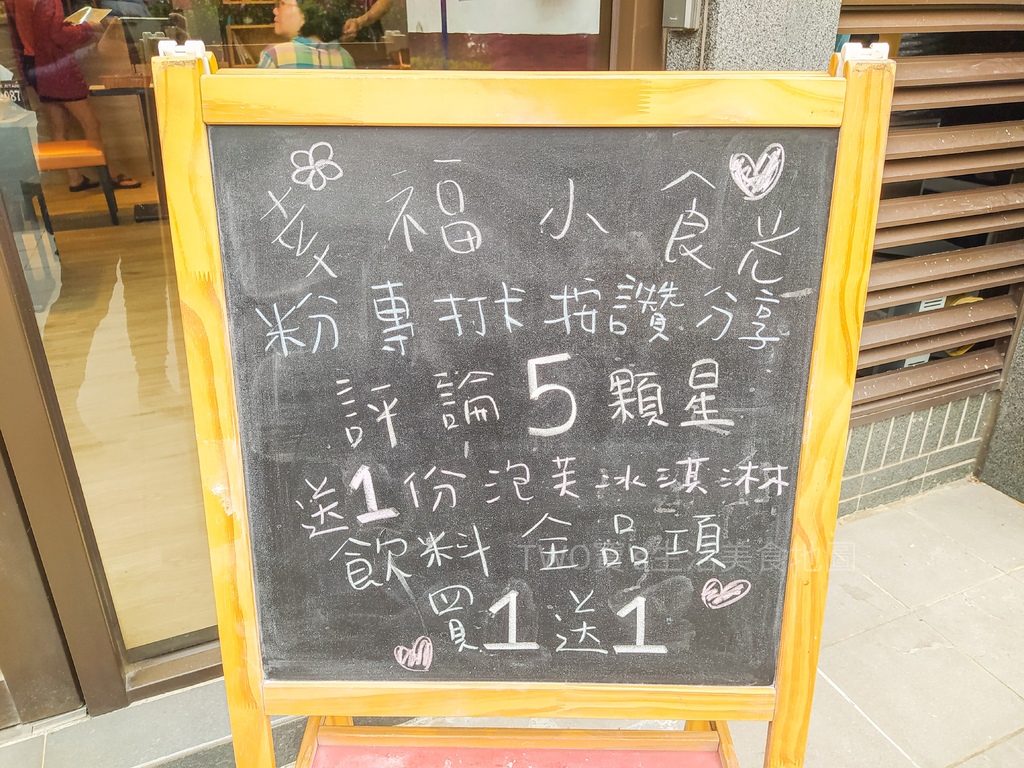 爻福小食光
粉專打卡按讚分享
評論5顆星
送1份泡芙冰淇淋
飲料全品項
買1送1